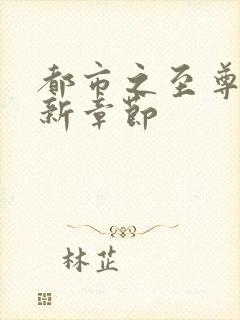 都市之至尊
新章节
林芷